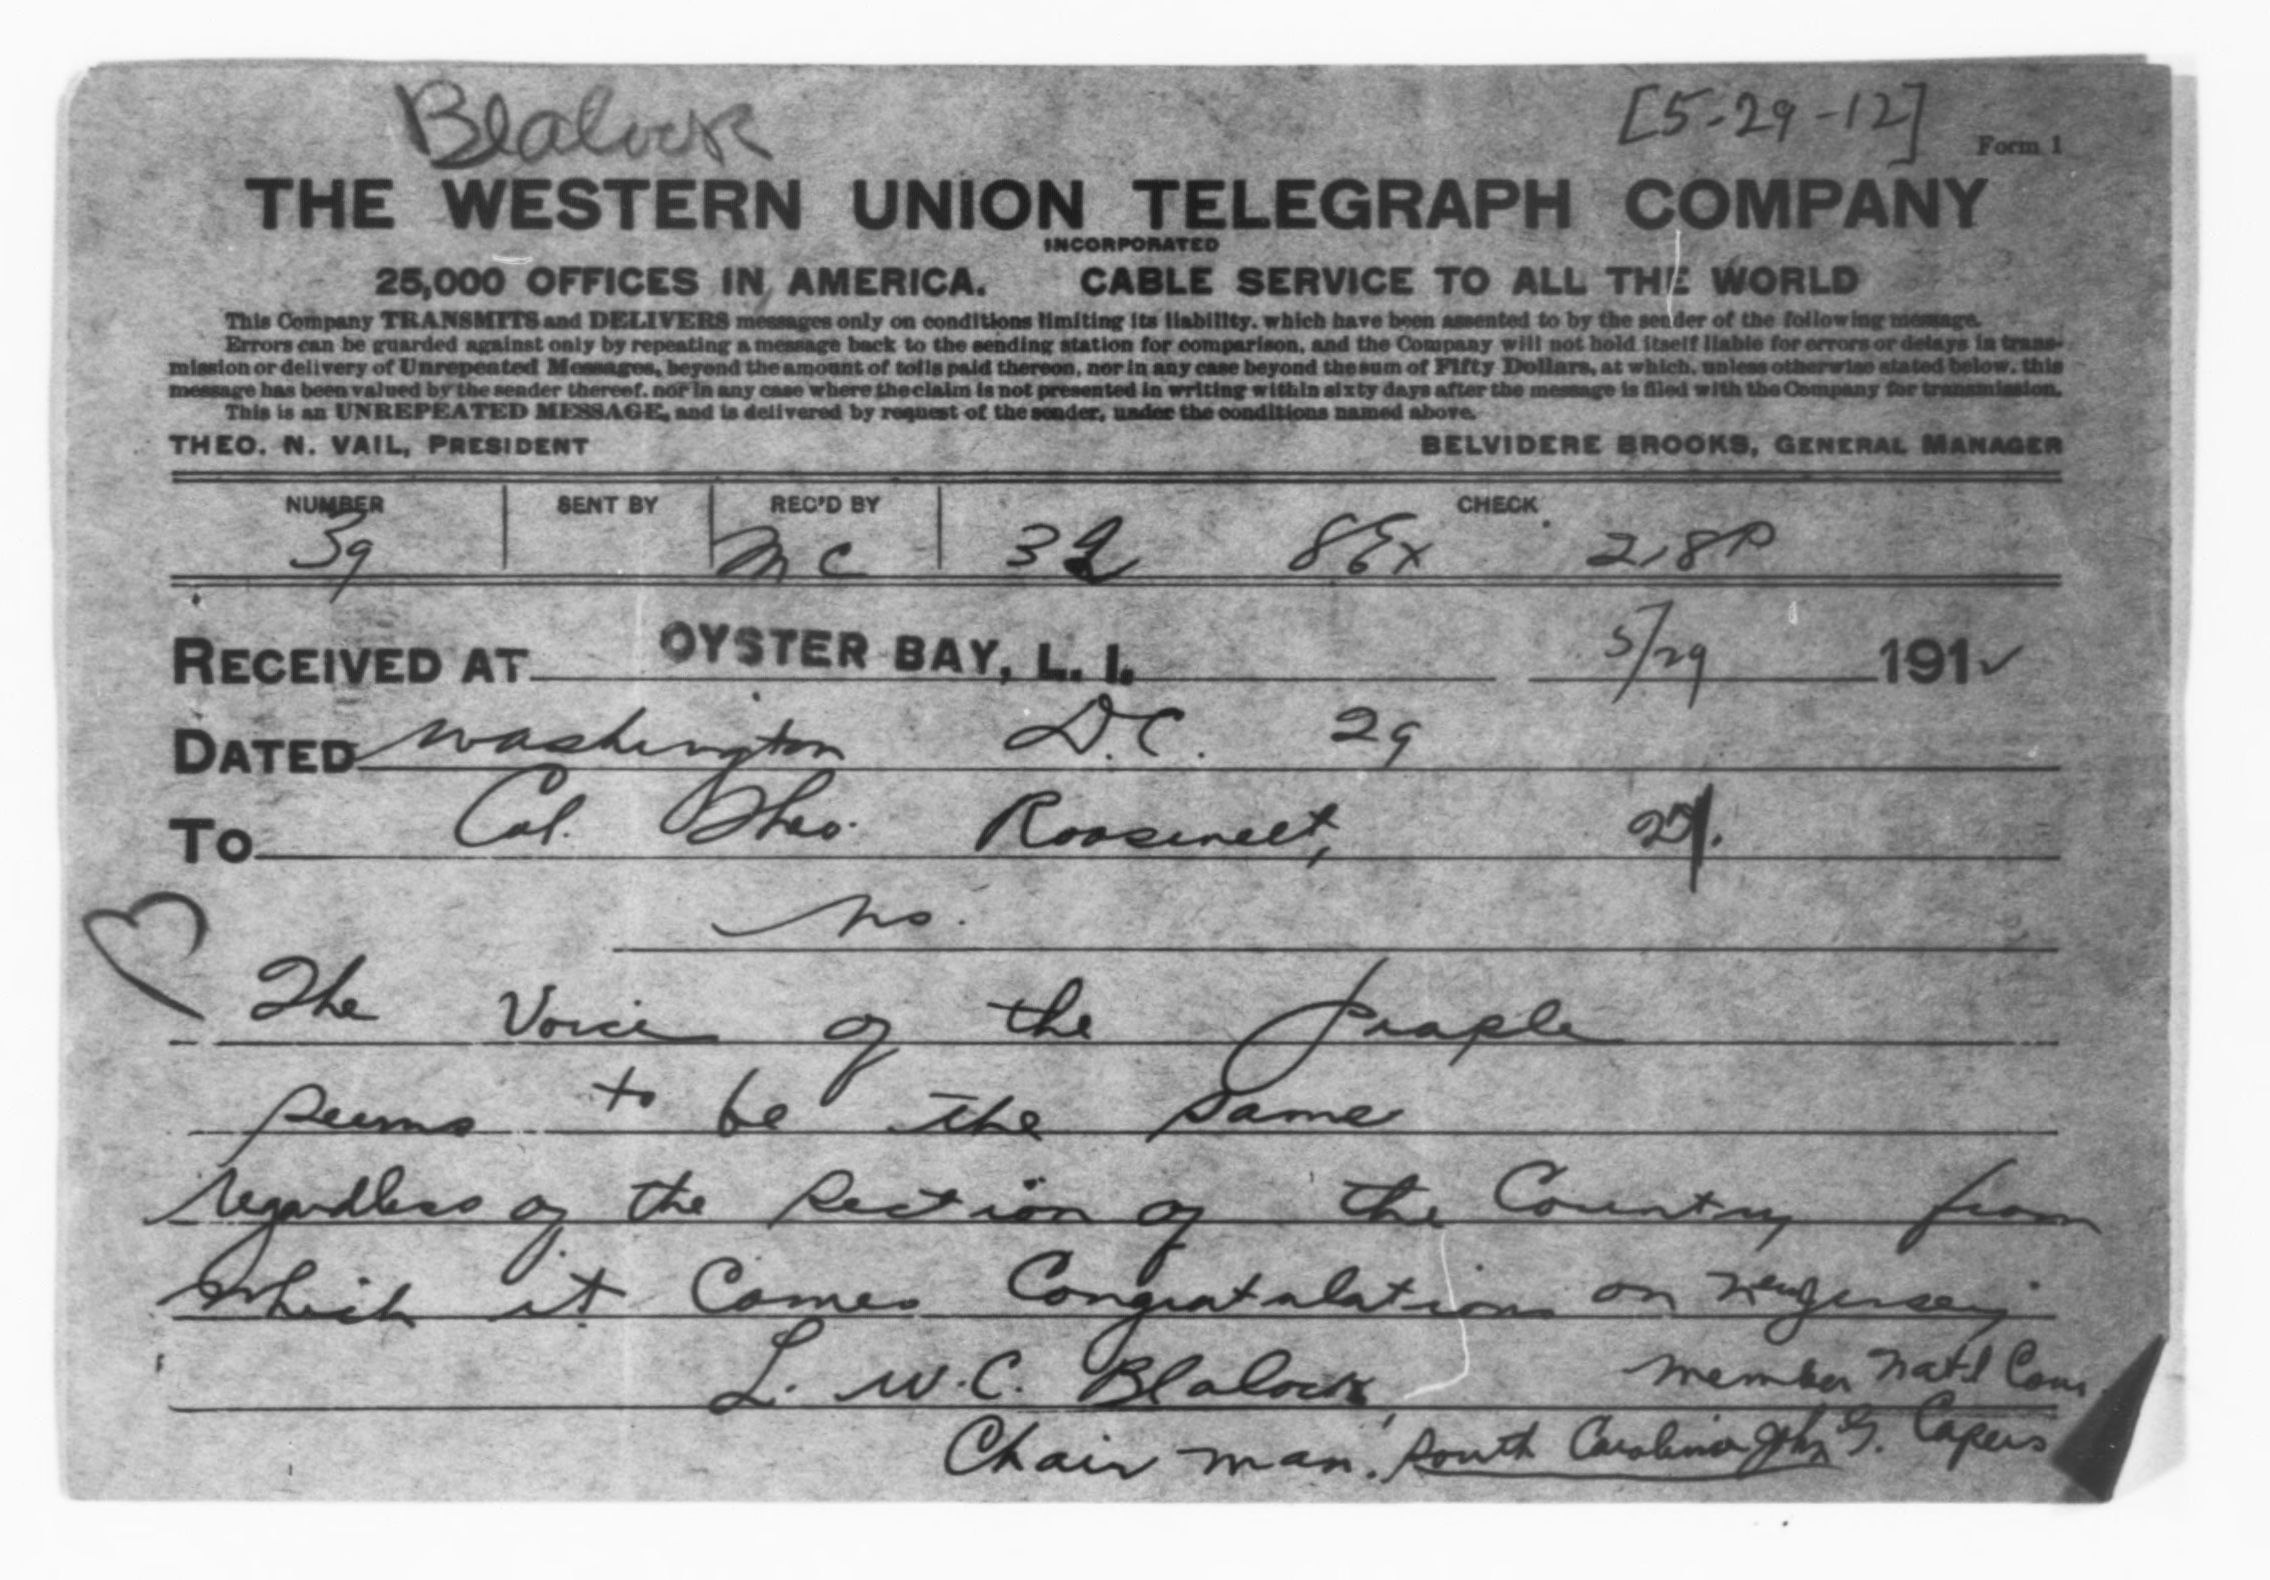 Blalock [5-29-12]
Form 1
THE WESTERN UNION TELEGRAPH COMPANY
INCORPORATED
25,000 OFFICES IN AMERICA. CABLE SERVICE TO ALL THE WORLD
This Company TRANSMITS and DELIVERS messages only on conditions limiting its liability, which have been assented to by the sender of the following message.
Errors can be guarded against only by repeating a message back to the sending station for comparison, and the Company will not hold itself liable for errors or delays in trans-
mission or delivery of Unrepeated Messages, beyond the amount of tolls paid thereon, nor in any case beyond the sum of Fifty Dollars, at which, unless otherwise stated below, this
message has been valued by the sender thereof, nor in any case where the claim is not presented in writing within sixty days after the message is filed with the Company for transmission.
This is an UNREPEATED MESSAGE, and is delivered by request of the sender, under the conditions named above.
THEO. N. VAIL, PRESIDENT BELVIDERE BROOKS, GENERAL MANAGER
NUMBER SENT BY REC'D BY CHECK
39 MC 32 8Ex 218P
RECEIVED AT OYSTER BAY, L. I. 5/29 1912
DATED Washington D.C. 29
To Col. Theo. Roosevelt,
The Voice of the people
seems to be the same
regardless of the section of the Country from
which it Comes Congratulations on New Jersey
L. W. C. Blalock, member Nat'l Com
Chairman. South Carolina John G. Capers